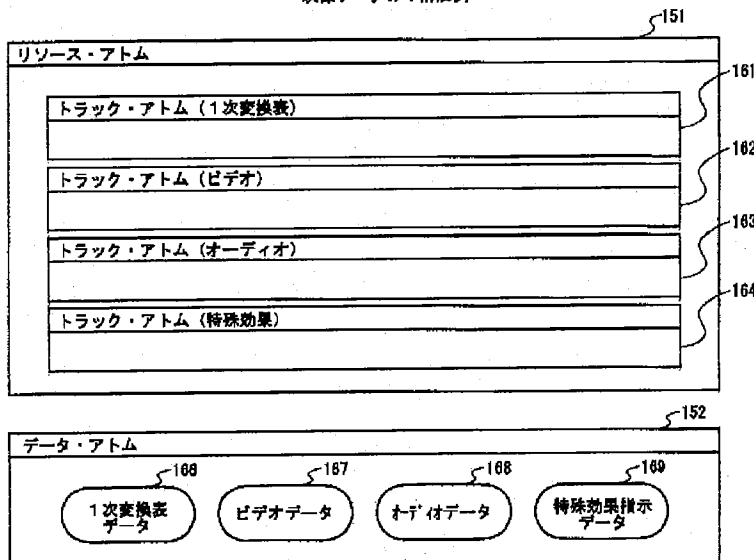 151
リソース・アトム
161
トラック・アトム (1次変換表)
162
トラック・アトム (ビデオ)
163
トラック・アトム (オーディオ)
164
トラック・アトム (特殊効果)
152
データ・アトム
166
1次変換表
データ
167
ビデオデータ
168
オーディオデータ
169
特殊効果指示
データ